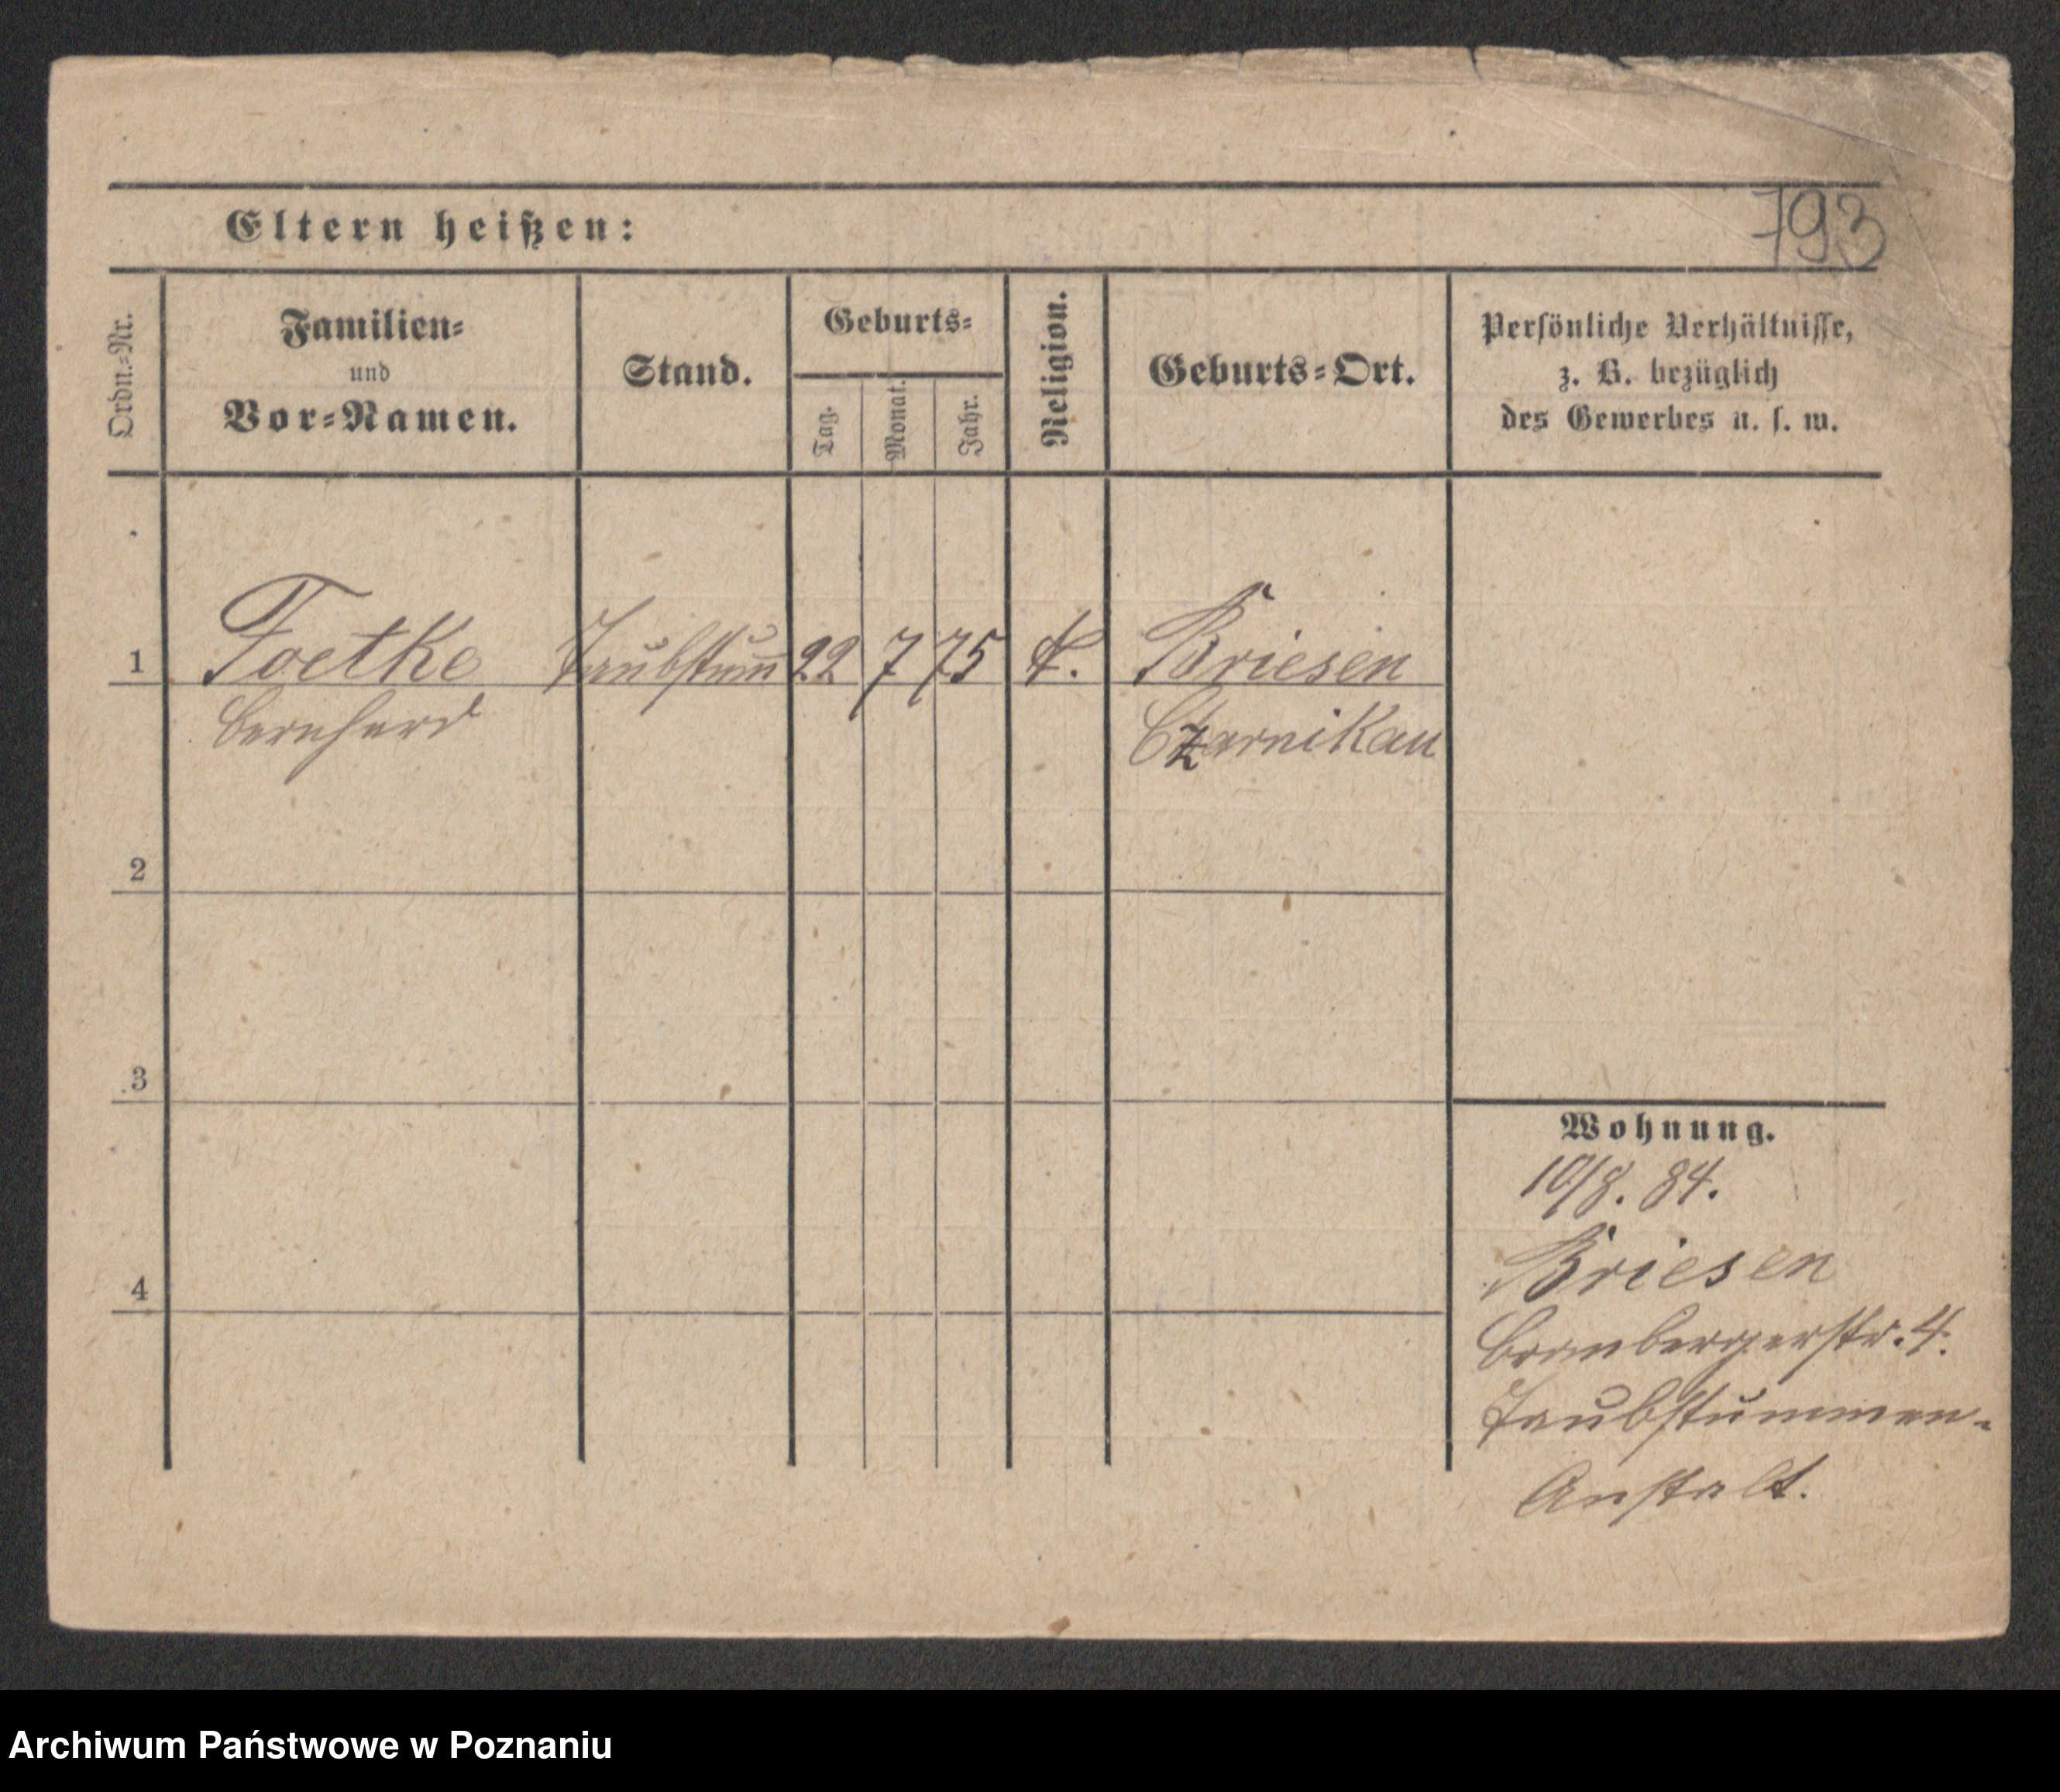 793
Eltern heißen:
Ordn.-Nr.
Familien-
und
Vor-Namen.
Stand.
Geburts-
Tag.
Monat.
Jahr.
Religion.
Geburts-Ort.
Persönliche Verhältnisse,
z. B. bezüglich
des Gewerbes u. s. w.
1 Foetke Taubstum̅ 22 7 75 Briesen
Bernhard Czarnikau
2
3
4
Wohnung.
10/8. 84.
Briesen
Brombergerstr. 4.
Taubstummen-
Anstalt.
Archiwum Państwowe w Poznaniu